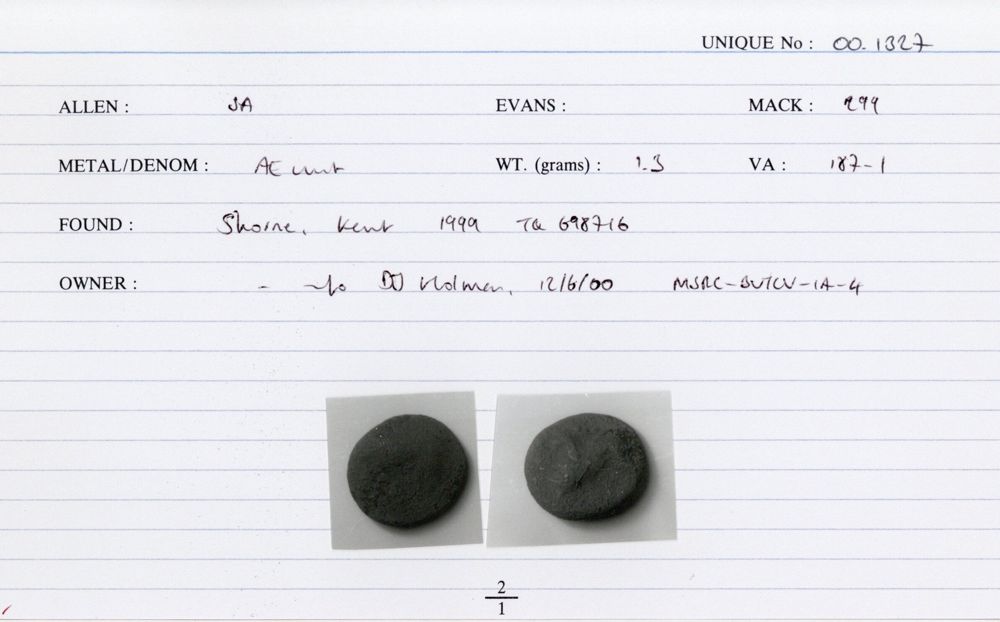 UNIQUE No : 00.1327
ALLEN : SA EVANS : MACK : 299
METAL/DENOM : AE unit WT. (grams) : 1.3 VA : 187-1
FOUND : Shorne, Kent 1999 TQ 698716
OWNER : - DJ Holman, 12/6/00
2
1